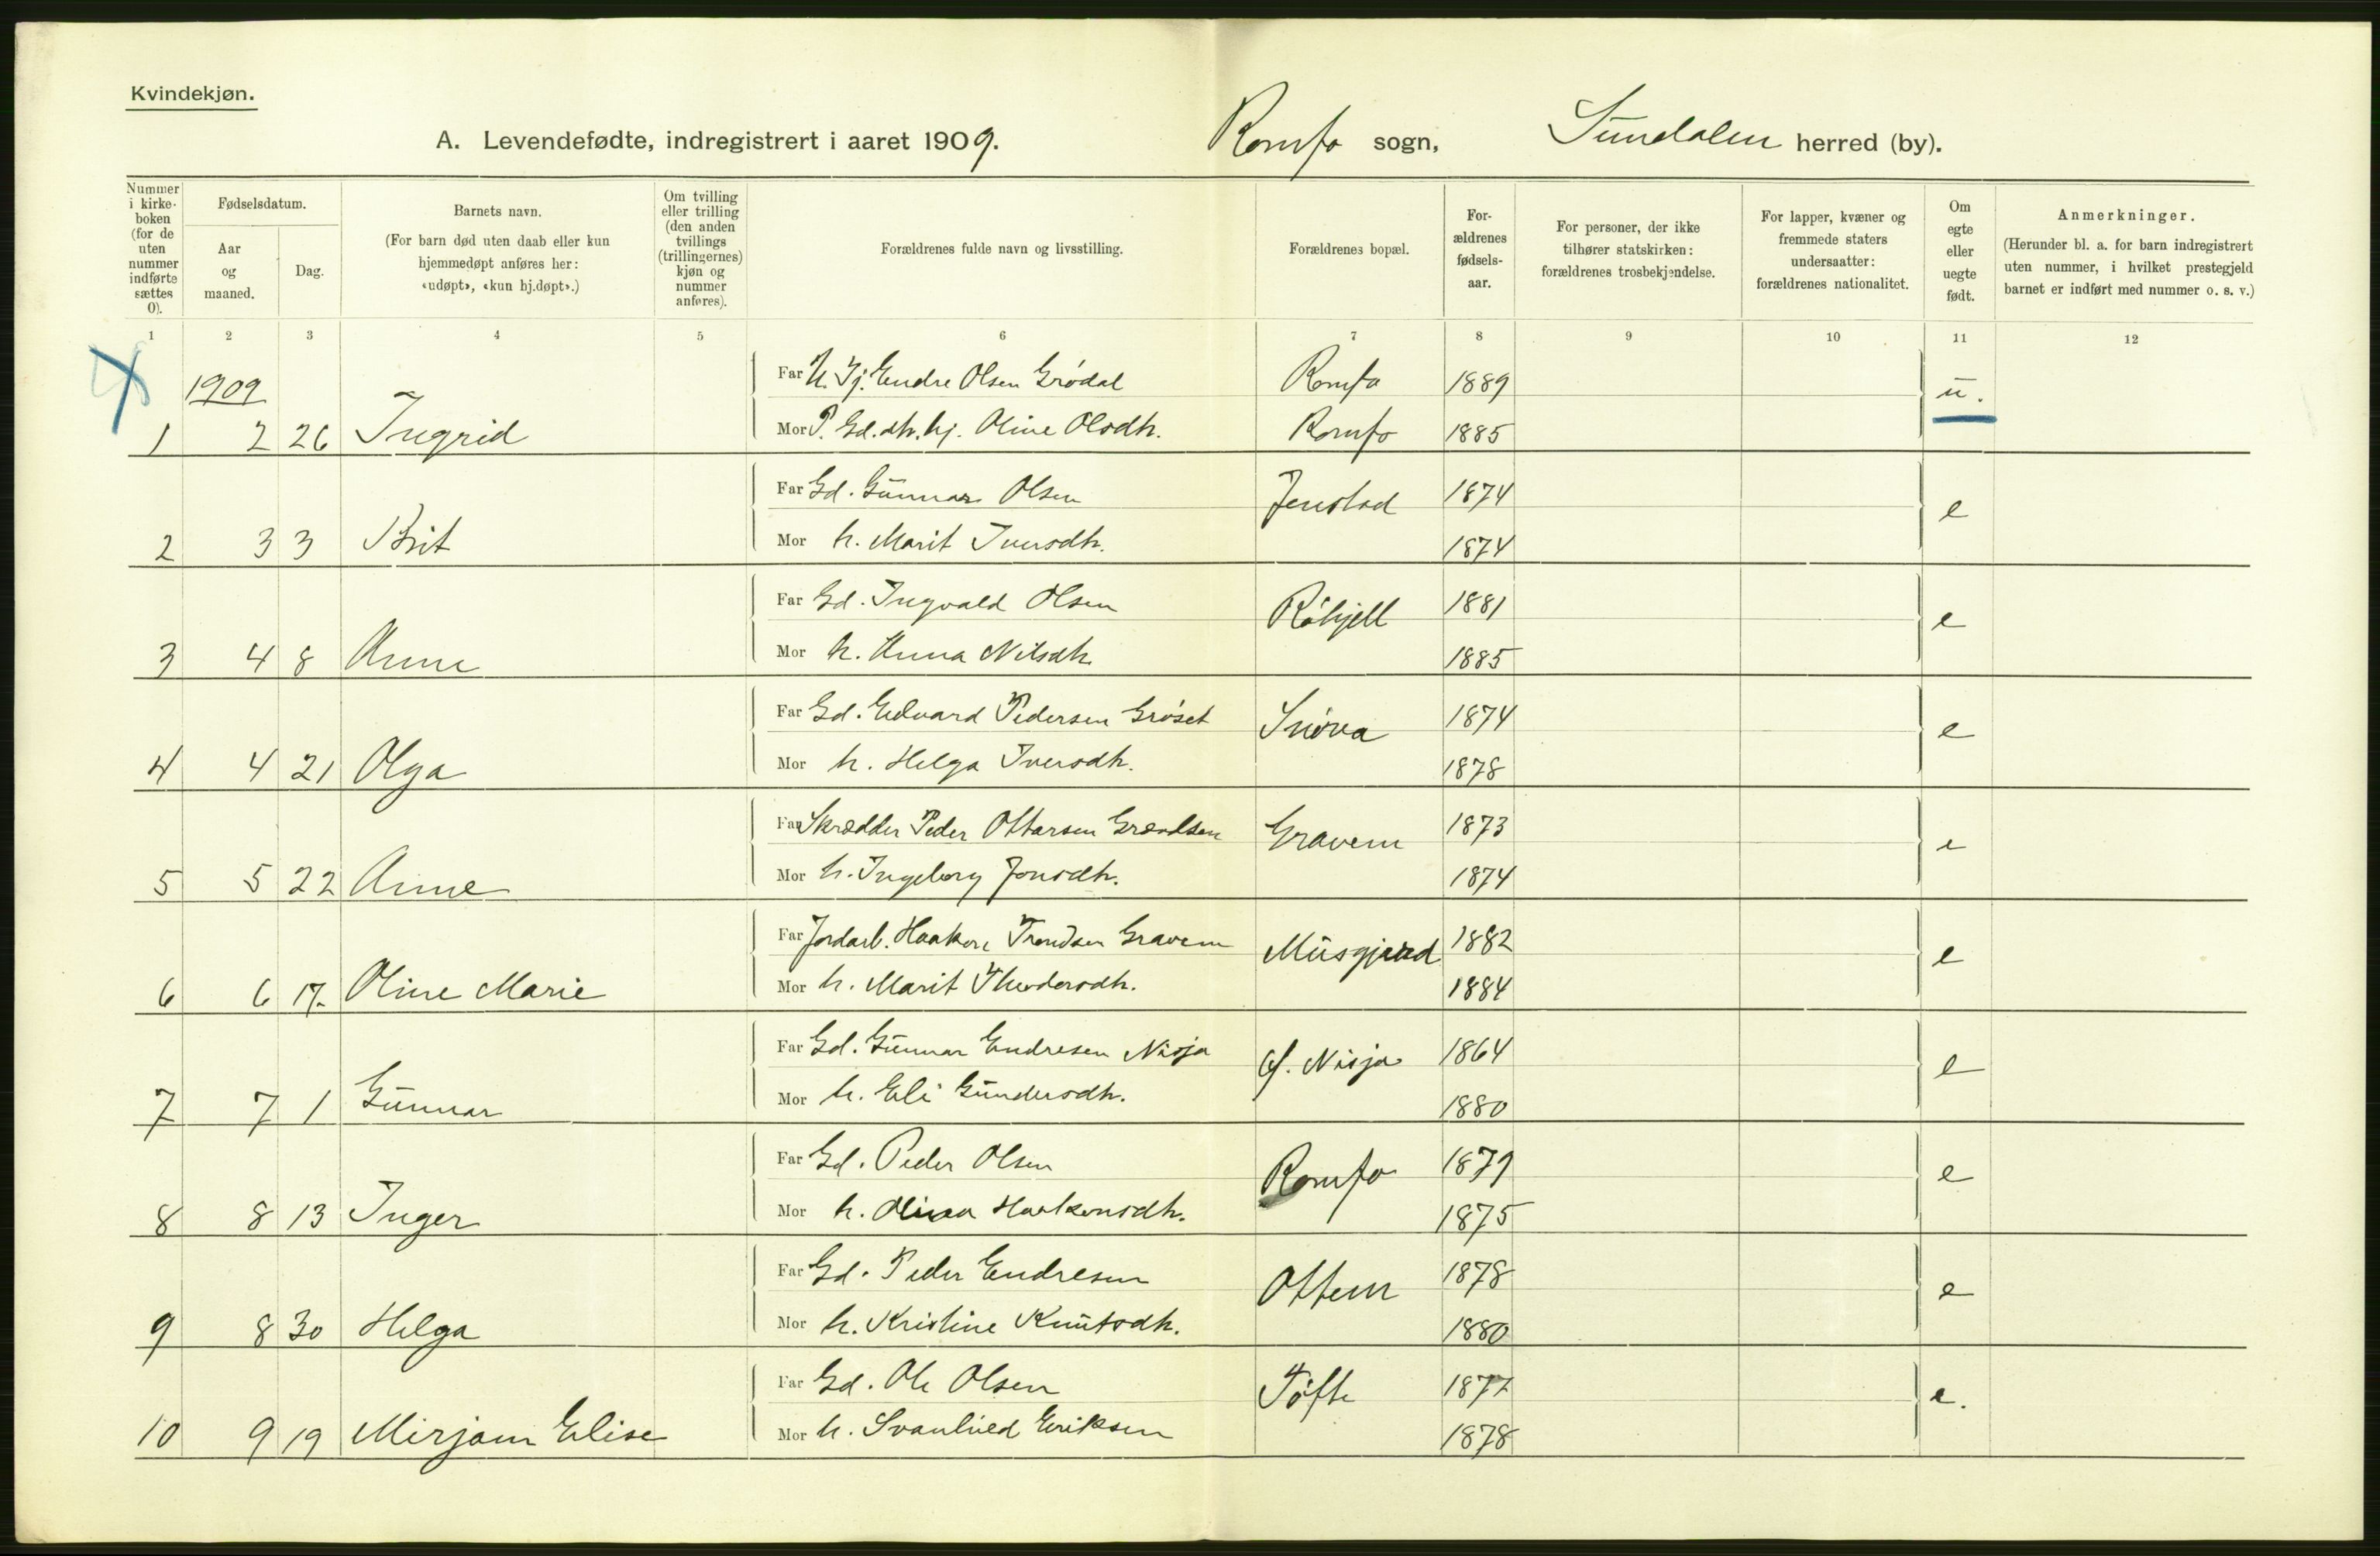 Kvindekjøn.
A. Levendefødte, indregistrert i aaret 1909. Romfo sogn, Sundalen herred (by).
Nummer i kirke-boken (for de uten nummer indførte sættes 0).
Fødselsdatum.
Aar og maaned.
Dag.
Barnets navn.
(For barn død uten daab eller kun hjemmedøpt anføres her: «udøpt», «kun hj.døpt».)
Om tvilling eller trilling (den anden tvillings (trillingernes) kjøn og nummer anføres).
Forældrenes fulde navn og livsstilling.
Forældrenes bopæl.
For-ældrenes fødsels-aar.
For personer, der ikke tilhører statskirken: forældrenes trosbekjendelse.
For lapper, kvæner og fremmede staters undersaatter: forældrenes nationalitet.
Om egte eller uegte født.
Anmerkninger.
(Herunder bl. a. for barn indregistrert uten nummer, i hvilket prestegjeld barnet er indført med nummer o. s. v.)
1 2 3 4 5 6 7 8 9 10 11 12
1909
Far U. Gj. Endre Olsen Grødal Romfo 1889 u.
1 2 26 Ingrid Mor P. Gd. dtr. hj. Oline Olsdtr. Romfo 1885
Far Gd. Gunnar Olsen Jenstad 1874 e
2 3 3 Brit Mor h. Marit Iversdtr. 1874
Far Gd. Ingvald Olsen Røhjell 1881 e
3 4 8 Anne Mor h. Anna Nilsdtr 1885
Far Gd. Edvard Pedersen Grøset Snøva 1874 e
4 4 21 Olga Mor h. Helga Iversdtr. 1878
Far Skrædder Peder Ottarsen Gravem 1873 e
5 5 22 Anne Mor h. Ingeborg Jonsdtr. 1874
Far Jordarb. Haakon Trondsen Gravem Musgjerd 1882 e
6 6 17. Oline Marie Mor h. Marit 1884
Far Gd. Gunnar Endresen Nisja Nisja 1864 e
7 7 1 Gunnar Mor h. Eli Gundersdtr. 1880
Far Gd. Peder Olsen Romfo 1879 e
8 8 13 Inger Mor h. Haakonsdtr. 1875
Far Gd. Peder Endresen Ottem 1878 e
9 8 30 Helga Mor h. Kristine Knutsdtr. 1880
Far Gd. Ole Olsen Tøfte 1877 e.
10 9 19 Mirjam Elise Mor h. Svanhild Eriksen 1878